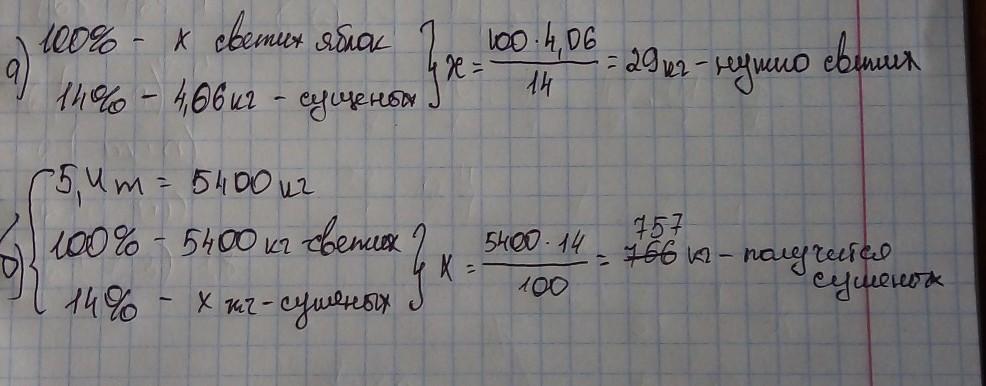 а) 100% - х свежих яблок } х = 100·4,06 / 14 = 29 кг - нужно свежих
14% - 4,06 кг - сушеных
б) 5,4 т = 5400 кг
100% - 5400 кг свежих } х = 5400·14 / 100 = 766 757 кг - получится сушеных
14% - х кг - сушеных